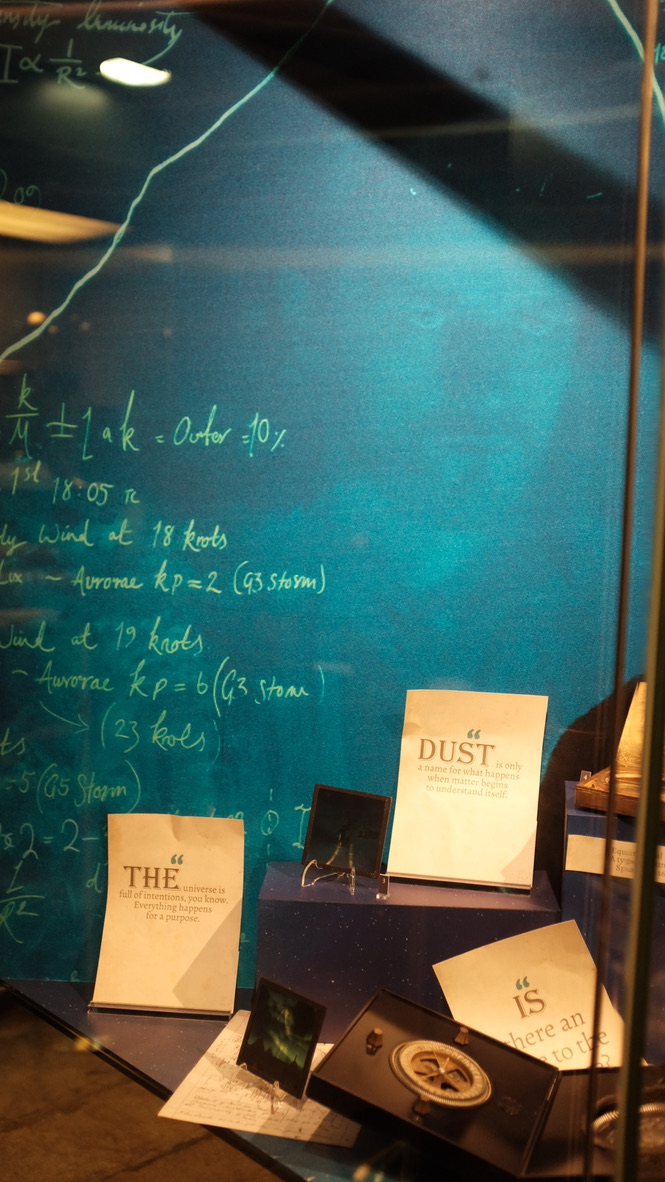 luminosity
I ∝ 1/R²
k/M ± [ a k = Outer = 10%
1st 18:05
Wind at 18 knots
~ Aurorae kp = 2 (G3 storm)
Wind at 19 knots
~ Aurorae kp = 6 (G3 storm)
→ (23 knots)
= 5 (G5 Storm)
2 = 2 -
1/R²
“
DUST is only
a name for what happens
when matter begins
to understand itself.
“
THE universe is
full of intentions, you know.
Everything happens
for a purpose.
“
IS
there an
to the
?